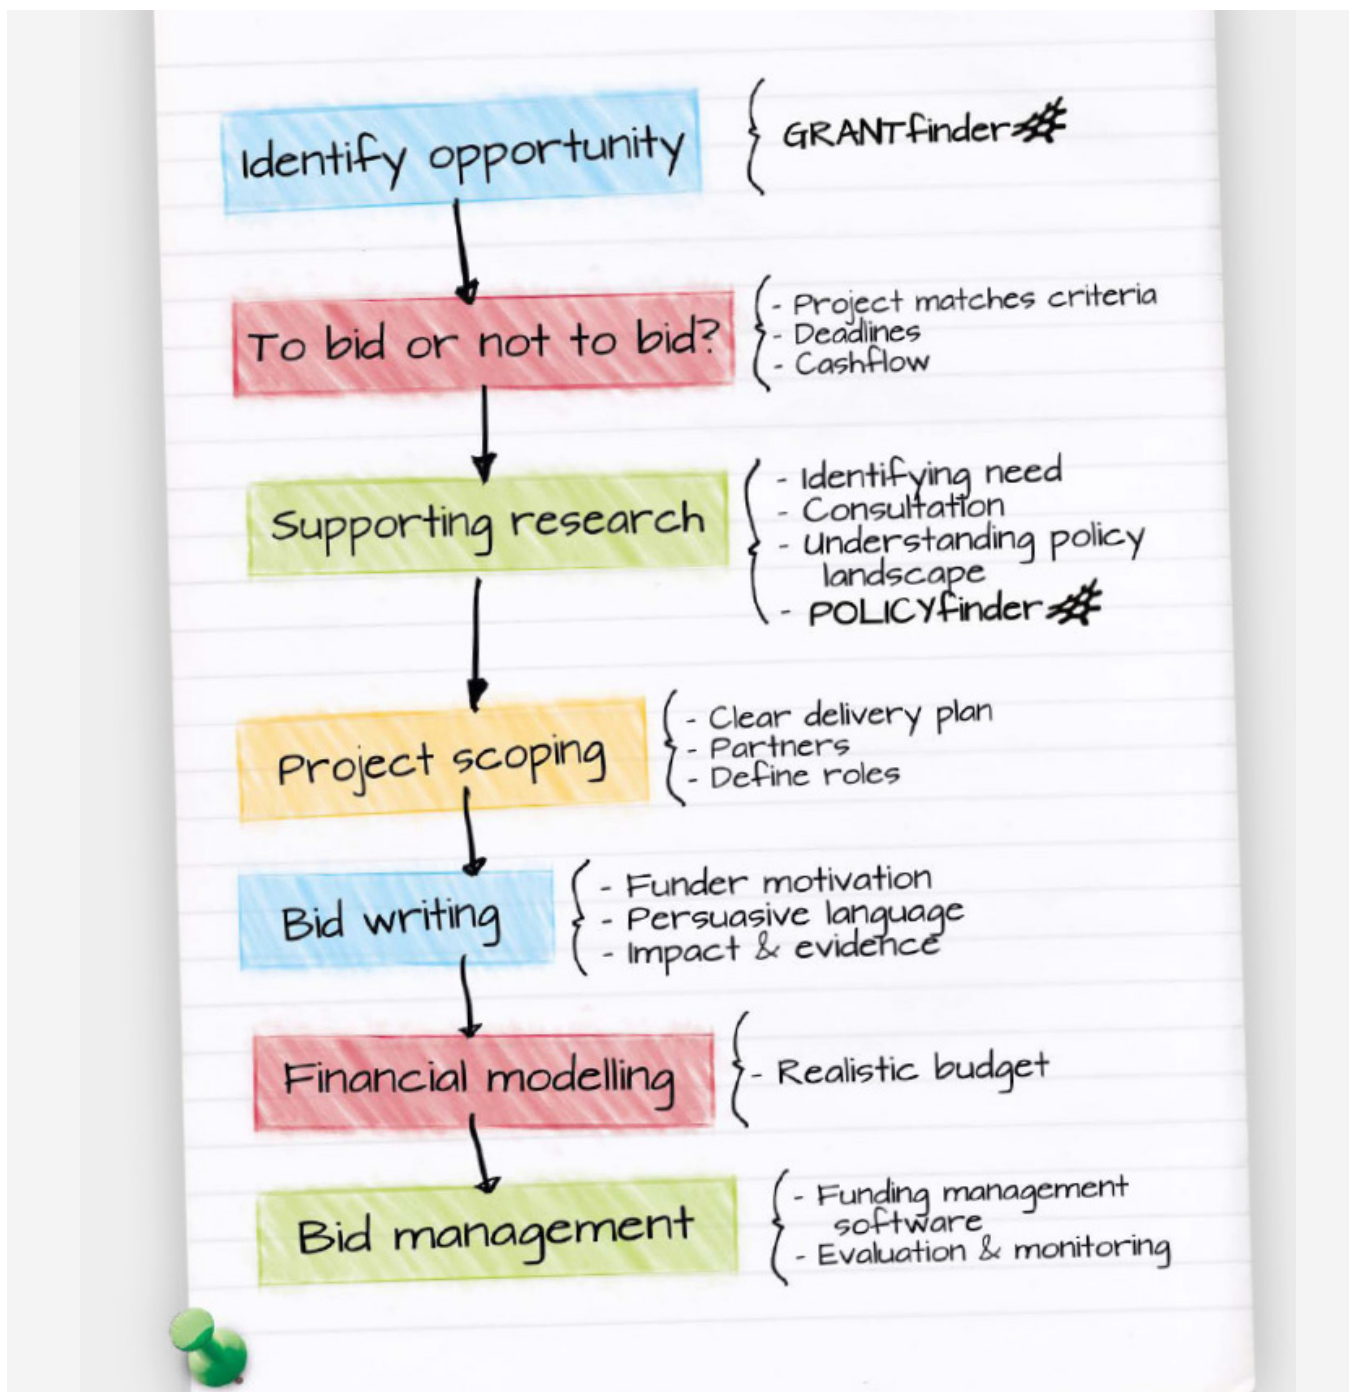 Identify opportunity
GRANTfinder
To bid or not to bid?
- Project matches criteria
- Deadlines
- Cashflow
Supporting research
- Identifying need
- Consultation
- Understanding policy
landscape
- POLICYfinder
Project scoping
- Clear delivery plan
- Partners
- Define roles
Bid writing
- Funder motivation
- Persuasive language
- Impact & evidence
Financial modelling
- Realistic budget
Bid management
- Funding management
software
- Evaluation & monitoring